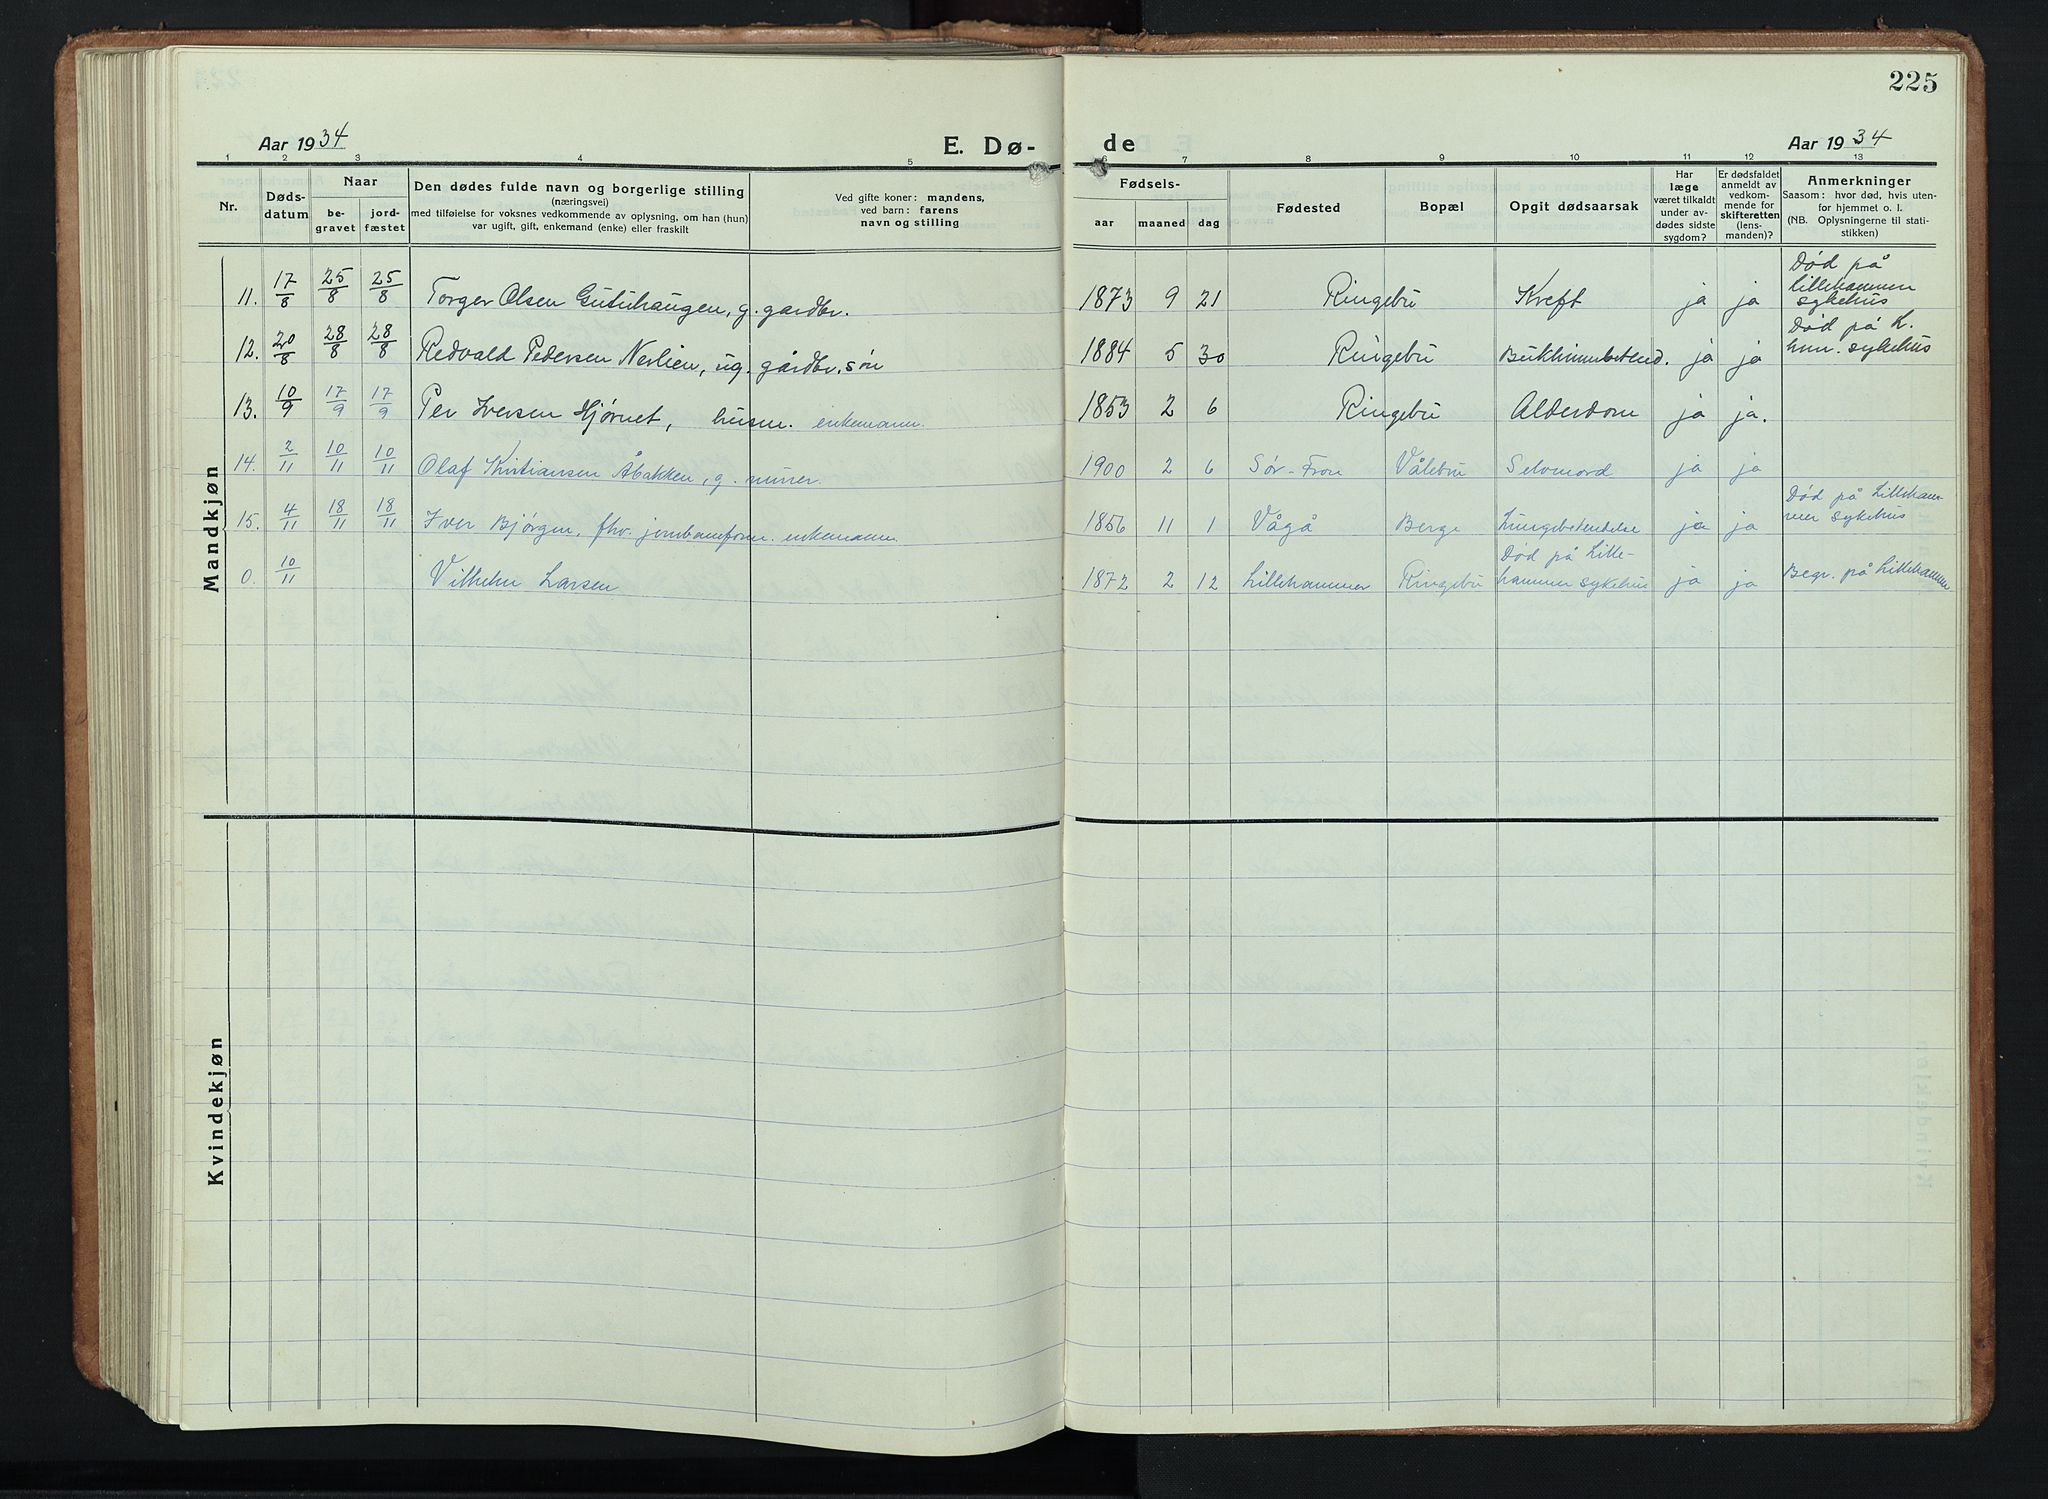 225
Aar 1934
E. Dø-
de
Aar 1934
1 2 3 4 5 6 7 8 9 10 11 12 13
Nr.
Døds-
datum
Naar
be-
gravet
jord-
fæstet
Den dødes fulde navn og borgerlige stilling
(næringsvei)
med tilføielse for voksnes vedkommende av oplysning, om han (hun)
var ugift, gift, enkemand (enke) eller fraskilt
Ved gifte koner: mandens,
ved barn: farens
navn og stilling
Fødsels-
aar maaned dag
Fødested
Bopæl
Opgit dødsaarsak
Har
læge
været tilkaldt
under av-
dødes sidste
sygdom?
Er dødsfaldet
anmeldt av
vedkom-
mende for
skifteretten
(lens-
manden)?
Anmerkninger
Saasom: hvor død, hvis uten-
for hjemmet o. l.
(NB. Oplysningerne til stati-
stikken)
Mandkjøn
11. 17/8 25/8 25/8 Torger Olsen Gutuhaugen, g. gardbr. 1873 9 21 Ringebu Kreft ja ja Død på
Lillehammer
sykehus
12. 20/8 28/8 28/8 Redvald Pedersen Nerlien, ug. gårdbr. søn 1884 5 30 Ringebu Bukhinnebetend. ja ja Død på L.
hmr. sykehus
13. 10/9 17/9 17/9 Per Iversen Hjørnet, husm. enkemann. 1853 2 6 Ringebu Alderdom ja ja.
14. 2/11 10/11 10/11 Olaf Kristiansen Åbakken, g. murer. 1900 2 6 Sør-Fron Vålebru Selvmord ja ja
15. 4/11 18/11 18/11 Iver Bjørgen, fhv. jernbaneform. enkemann. 1856 11 1 Vågå Berge Lungebetendelse ja ja Død på Lilleham-
mer sykehus
0. 10/11 Vilhelm Larsen 1872 2 12 Lillehammer Ringebu Død på Lille-
hammer sykehus ja ja Begr. på Lillehammer
Kvindekjøn